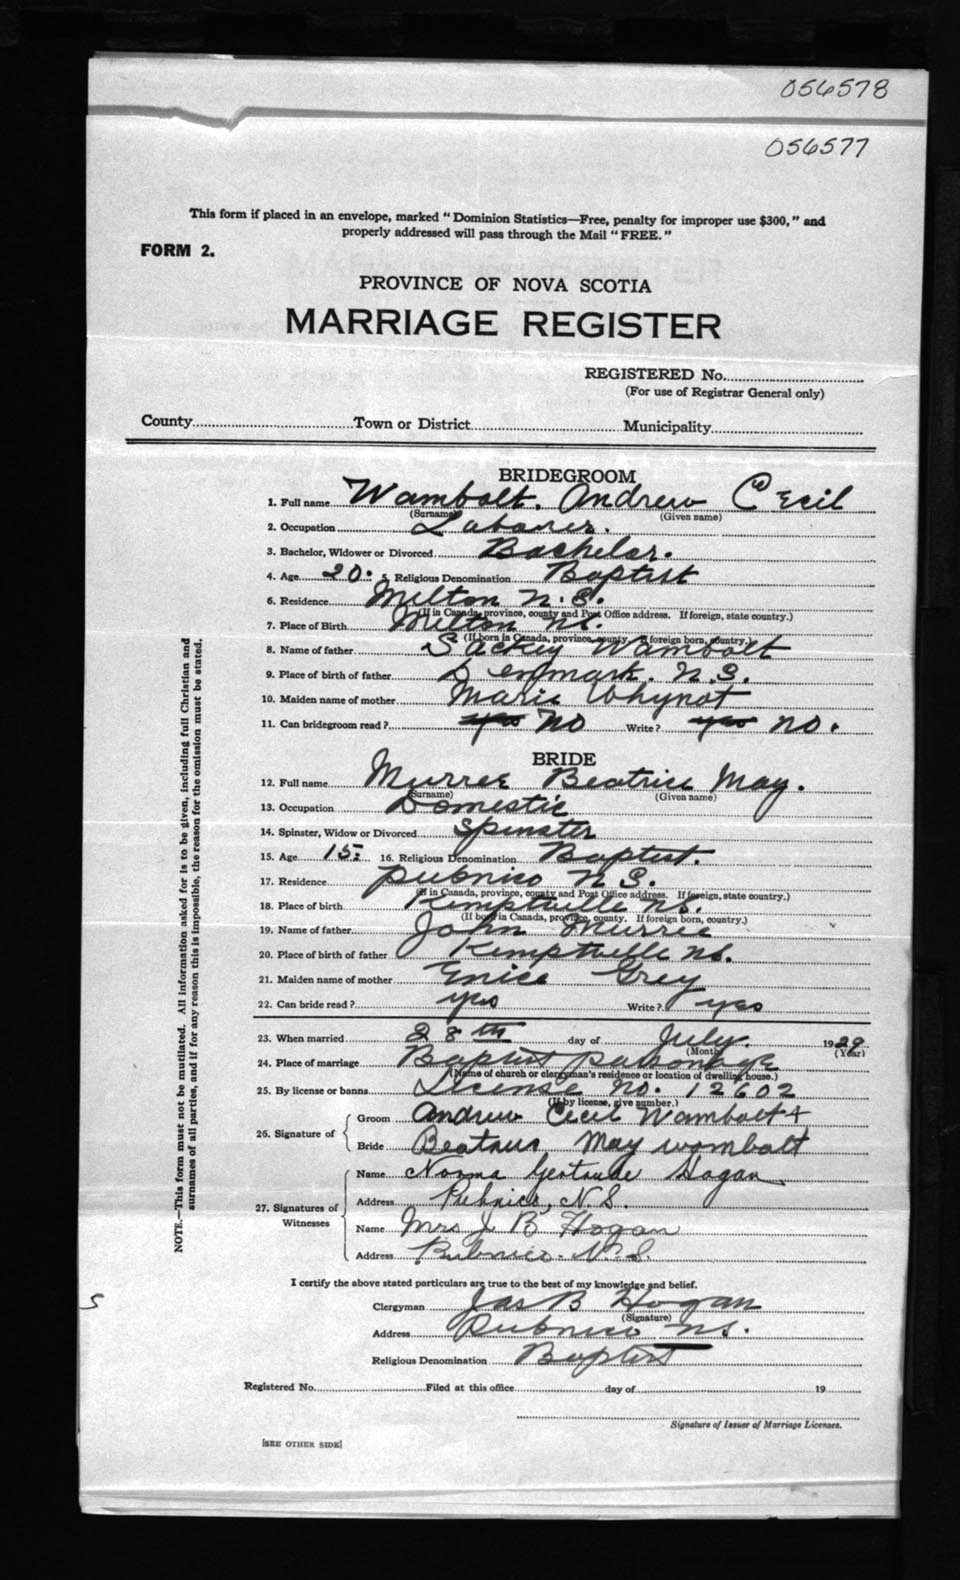 056578
056577
This form if placed in an envelope, marked "Dominion Statistics—Free, penalty for improper use $300," and
properly addressed will pass through the Mail "FREE."
FORM 2.
PROVINCE OF NOVA SCOTIA
MARRIAGE REGISTER
REGISTERED No.
(For use of Registrar General only)
County Town or District Municipality
BRIDEGROOM
1. Full name Wambolt. Andrew Cecil
(Surname) (Given name)
2. Occupation Laborer.
3. Bachelor, Widower or Divorced Bachelor.
4. Age 20. 5. Religious Denomination Baptist
6. Residence Milton N.S.
(If in Canada, province, county and Post Office address. If foreign, state country.)
7. Place of Birth Milton NS.
(If born in Canada, province, county. If foreign born, country.)
8. Name of father Sackey Wambolt
9. Place of birth of father Denmark. N.S.
10. Maiden name of mother Marie Whynot
11. Can bridegroom read? yes NO Write? yes no.
BRIDE
12. Full name Murree Beatrice May.
(Surname) (Given name)
13. Occupation Domestic
14. Spinster, Widow or Divorced Spinster
15. Age 15. 16. Religious Denomination Baptist.
17. Residence Pubnico N S.
(If in Canada, province, county and Post Office address. If foreign, state country.)
18. Place of birth Kemptville NS.
(If born in Canada, province, county. If foreign born, country.)
19. Name of father John Murree
20. Place of birth of father Kemptville NS.
21. Maiden name of mother Enice Grey
22. Can bride read? yes Write? yes
23. When married 28th day of July. 1929
(Month) (Year)
24. Place of marriage Baptist parsonage
(Name of church or clergyman's residence or location of dwelling house.)
25. By license or banns License No. 12602
(If by license, give number.)
26. Signature of Groom Andrew Cecil Wambolt +
Bride May wombolt
27. Signatures of Witnesses Name Norma Gertrude Hogan
Address Pubnico, N.S.
Name Mrs J B Hogan
Address Pubnico. N.S.
I certify the above stated particulars are true to the best of my knowledge and belief.
Clergyman Jas B Hogan
(Signature)
Address Pubnico NS.
Religious Denomination Baptist
Registered No. Filed at this office day of 19
Signature of Issuer of Marriage Licenses.
[SEE OTHER SIDE]
NOTE.—This form must not be mutilated. All information asked for is to be given, including full Christian and
surnames of all parties, and if for any reason this is impossible, the reason for the omission must be stated.
5